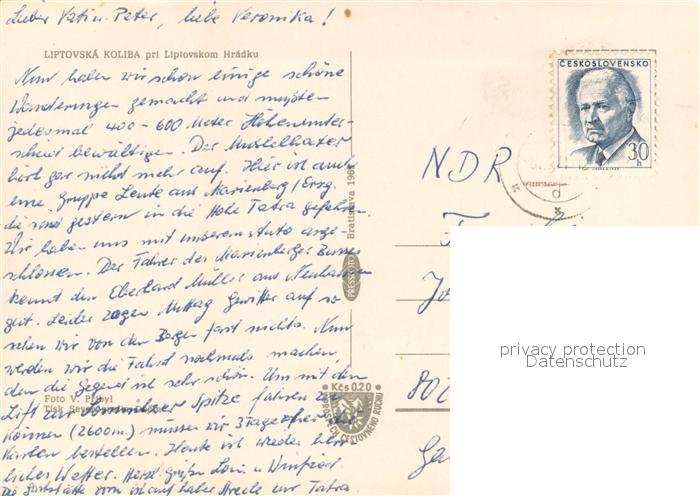 Lieber Vati u. Peter, liebe Veronika!
LIPTOVSKÁ KOLIBA pri Liptovskom Hrádku
Nun haben wir schon einige schöne
Wanderungen gemacht und mußten
jedesmal 400-600 Meter Höhenunter-
schied bewältigen. Der Muskelkater
hört gar nicht mehr auf. Hier ist auch
eine Gruppe Leute aus Marienberg/Erzg.
die sind gestern in die Hohe Tatra gefahren.
Wir haben uns mit unserem Auto ange-
schlossen. Der Fahrer des Marienberger Busses
kennt den Eberhard Müller aus Neuhausen
gut. Leider zogen Mittag Gewitter auf so
sahen wir von den Bergen fast nichts. Nun
werden wir die Fahrt nochmals machen,
denn die Gegend ist sehr schön. Um mit dem
Lift zur Spitze fahren zu
können (2600m) müssen wir 3 Tage vorher
Karten bestellen. Heute ist wieder herr-
liches Wetter. Herzl. Grüße und Winfried.
Die Gaststätte vorn ist auf halber Strecke zur Tatra.
Foto V. Přibyl
Tisk
Kčs 0,20
PRESSFOTO
Bratislava 196
ČESKOSLOVENSKO
30 h
NDR
802
privacy protection
Datenschutz